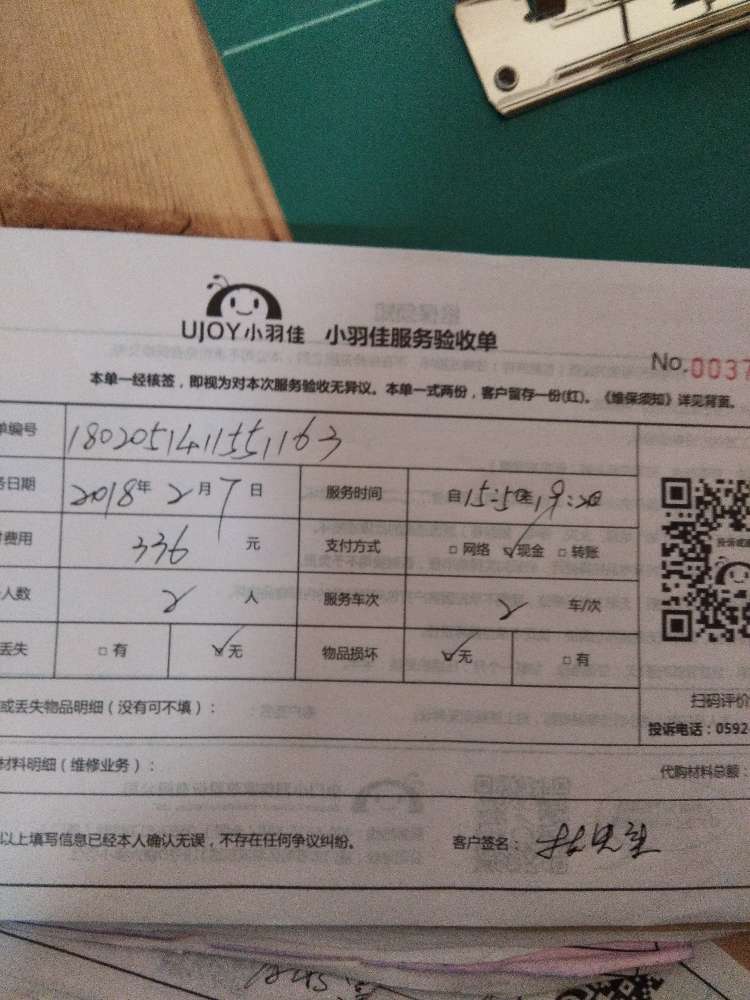 UJOY小羽佳 小羽佳服务验收单
No.0037
本单一经核签，即视为对本次服务验收无异议。本单一式两份，客户留存一份(红)。《维保须知》详见背面。
单编号 1802051411551163
务日期 2018年 2月7日 服务时间 自15:50至
付费用 336 元 支付方式 □ 网络 ☑现金 □ 转账
人数 2 人 服务车次 2 车/次
丢失 □ 有 ☑无 物品损坏 ☑无 □ 有
投诉或
扫码评价
或丢失物品明细（没有可不填）：
投诉电话：0592
材料明细（维修业务）：
代购材料总额：
以上填写信息已经本人确认无误，不存在任何争议纠纷。 客户签名：